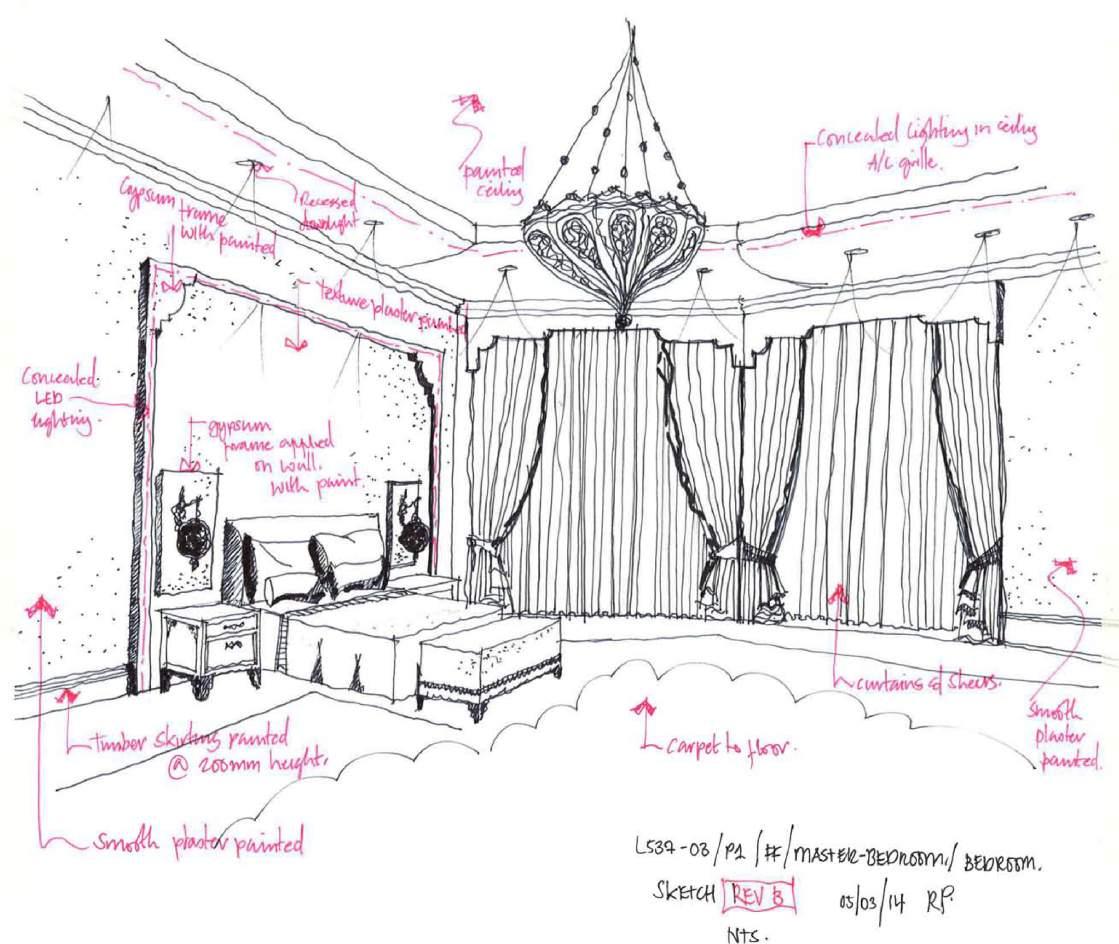 painted
ceiling
Concealed Lighting in ceiling
A/C grille.
Gypsum
frame
with painted
Recessed
downlight
texture plaster painted
Concealed
LED
lighting.
gypsum
frame applied
on wall.
with paint.
Timber skirting painted
@ 200mm height.
Smooth plaster painted
carpet to floor.
curtains & sheers.
Smooth
plaster
painted.
L537-03/P1/FF/MASTER-BEDROOM/BEDROOM.
SKETCH REV B 05/03/14 RP.
NTS.